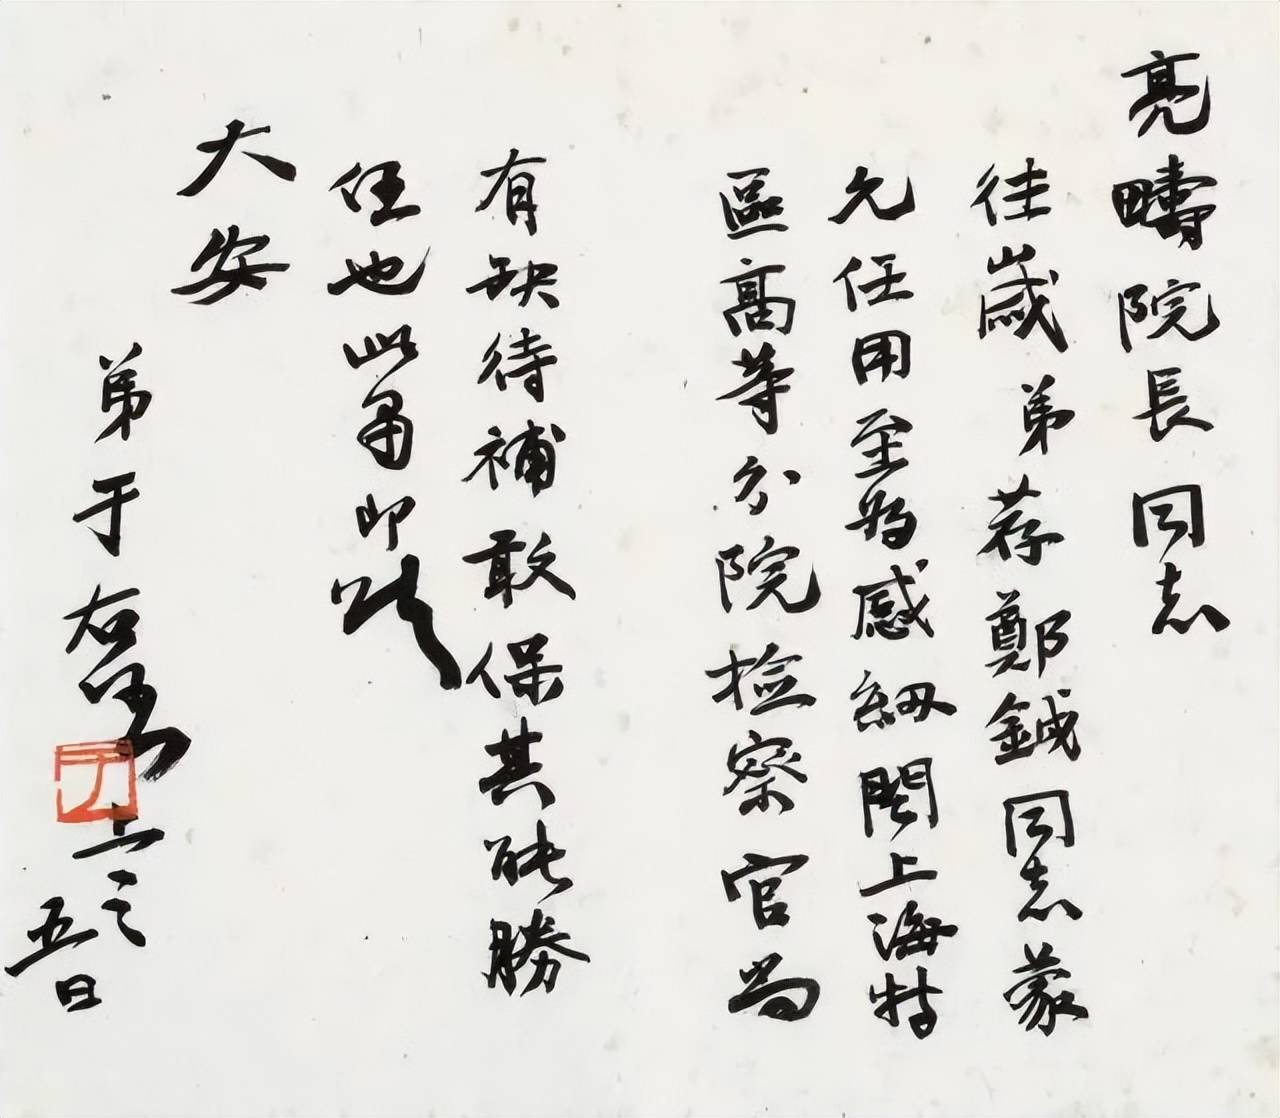 亮疇院長同志
往歲弟荐鄭鉞同志蒙
允任用至為感紉聞上海特
區高等分院檢察官尚
有缺待補敢保其能勝
任也此肅即頌
大安
弟于右任
五日
于